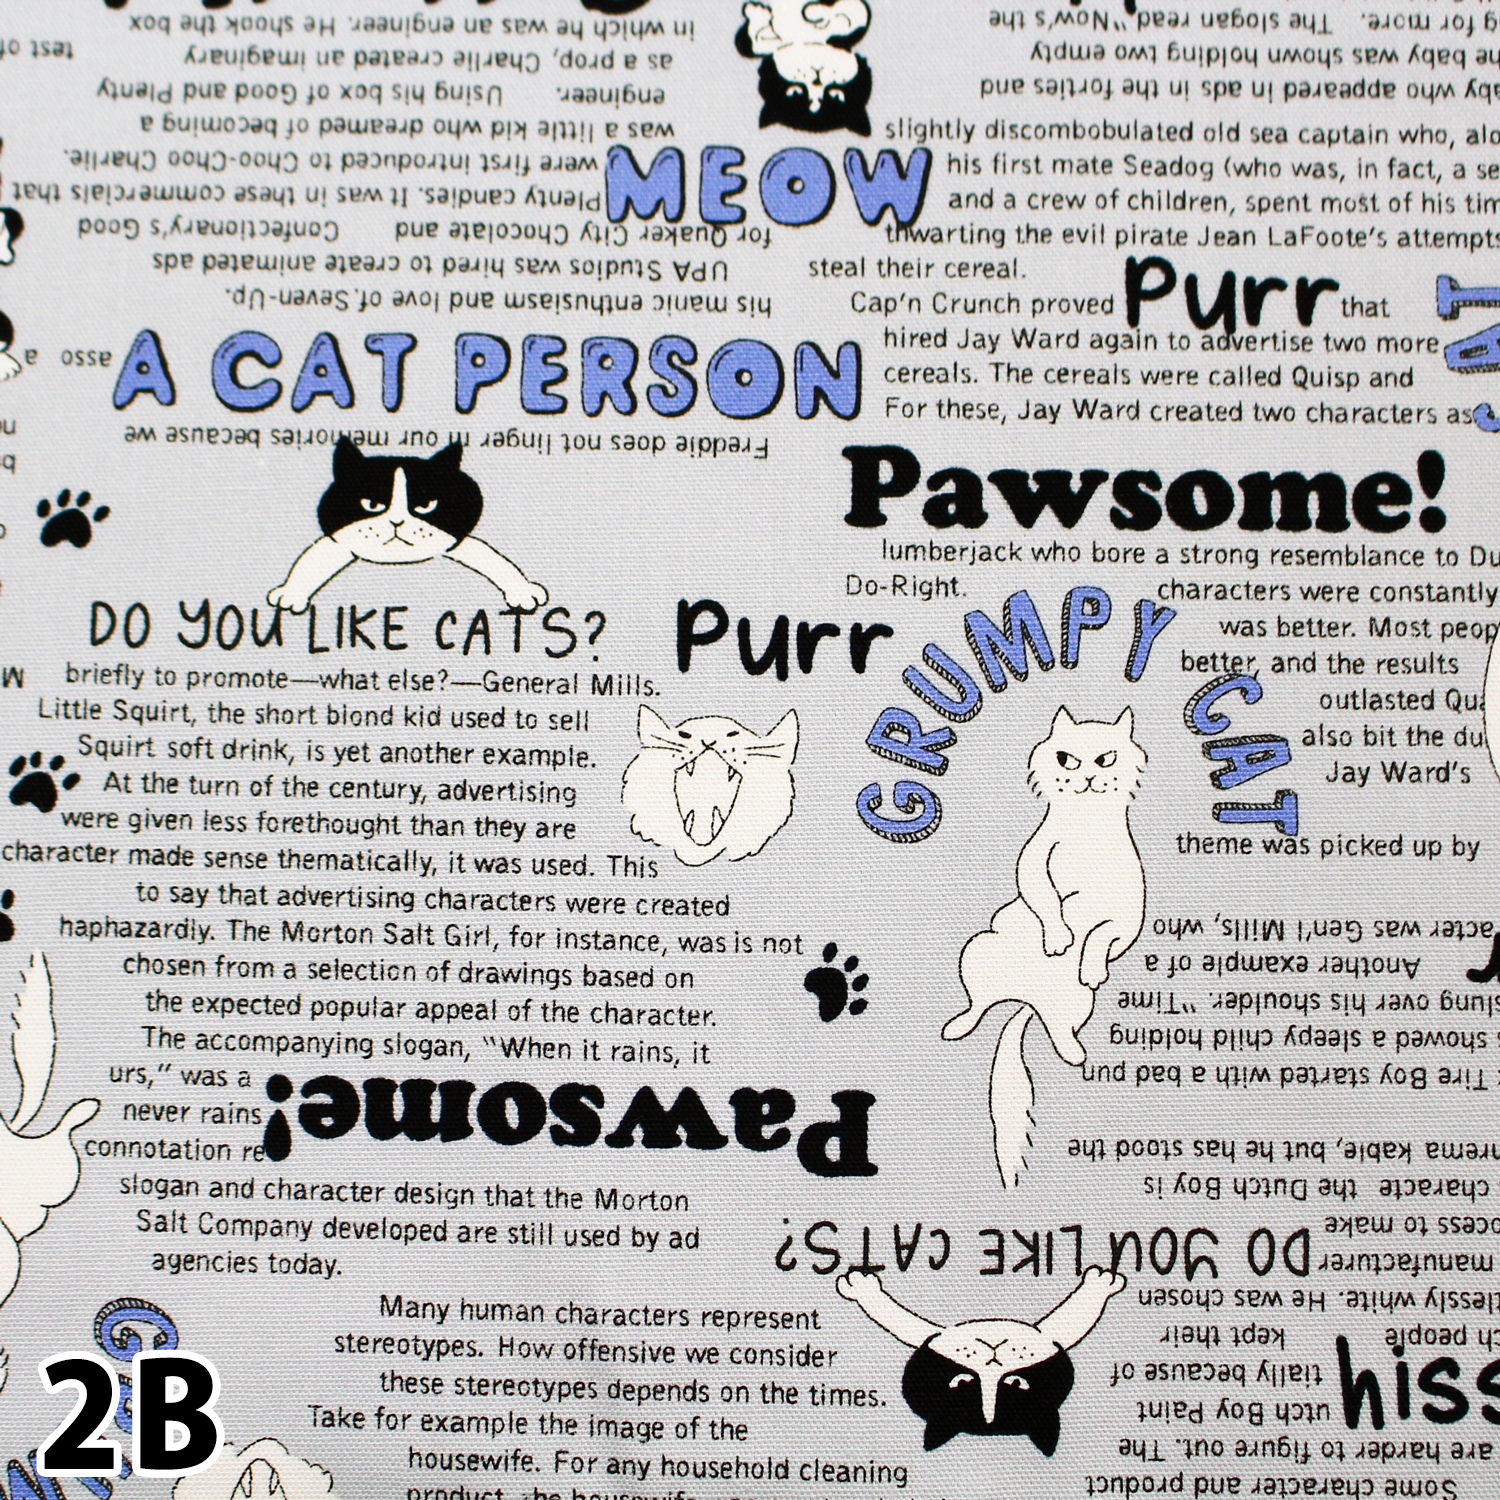 in which he was an engineer. He shook the box
as a prop, Charlie created an imaginary
engineer. Using his box of Good and Plenty
was a little kid who dreamed of becoming a
were first introduced to Choo-Choo Charlie.
Plenty candies. It was in these commercials that
for Quaker City Chocolate and Confectionary's Good
UPA Studios was hired to create animated ads
his manic enthusiasm and love of Seven-Up.
test of
g for more. The slogan read "Now's the
baby was shown holding two empty
who appeared in ads in the forties and
MEOW
slightly discombobulated old sea captain who,
his first mate Seadog (who was, in fact, a
and a crew of children, spent most of his
thwarting the evil pirate Jean LaFoote's
steal their cereal.
Cap'n Crunch proved
Purr
that
hired Jay Ward again to advertise two more
cereals. The cereals were called Quisp and
For these, Jay Ward created two characters as
asso
a
A CAT PERSON
Freddie does not linger in our memories because we
Pawsome!
lumberjack who bore a strong resemblance to
Do-Right.
characters were constantly
was better. Most
better, and the results
outlasted
also bit the
Jay Ward's
theme was picked up by
DO YOU LIKE CATS?
Purr
GRUMPY CAT
briefly to promote—what else?—General Mills.
Little Squirt, the short blond kid used to sell
Squirt soft drink, is yet another example.
At the turn of the century, advertising
were given less forethought than they are
character made sense thematically, it was used. This
to say that advertising characters were created
haphazardly. The Morton Salt Girl, for instance, was is not
chosen from a selection of drawings based on
the expected popular appeal of the character.
The accompanying slogan, "When it rains, it
urs," was a
never rains
connotation re
Pawsome!
slogan and character design that the Morton
Salt Company developed are still used by ad
agencies today.
Many human characters represent
stereotypes. How offensive we consider
these stereotypes depends on the times.
Take for example the image of the
housewife. For any household cleaning
acter was Gen'l Mills, who
Another example of a
slung over his shoulder. "Time
showed a sleepy child holding
Tire Boy started with a bad pun
kable, but he has stood the
characte the Dutch Boy is
ocess to make
manufacturer
DO YOU LIKE CATS?
white. He was chosen
people kept their
tially because of
utch Boy Paint
hiss
are harder to figure out. The
Some character and product
2B